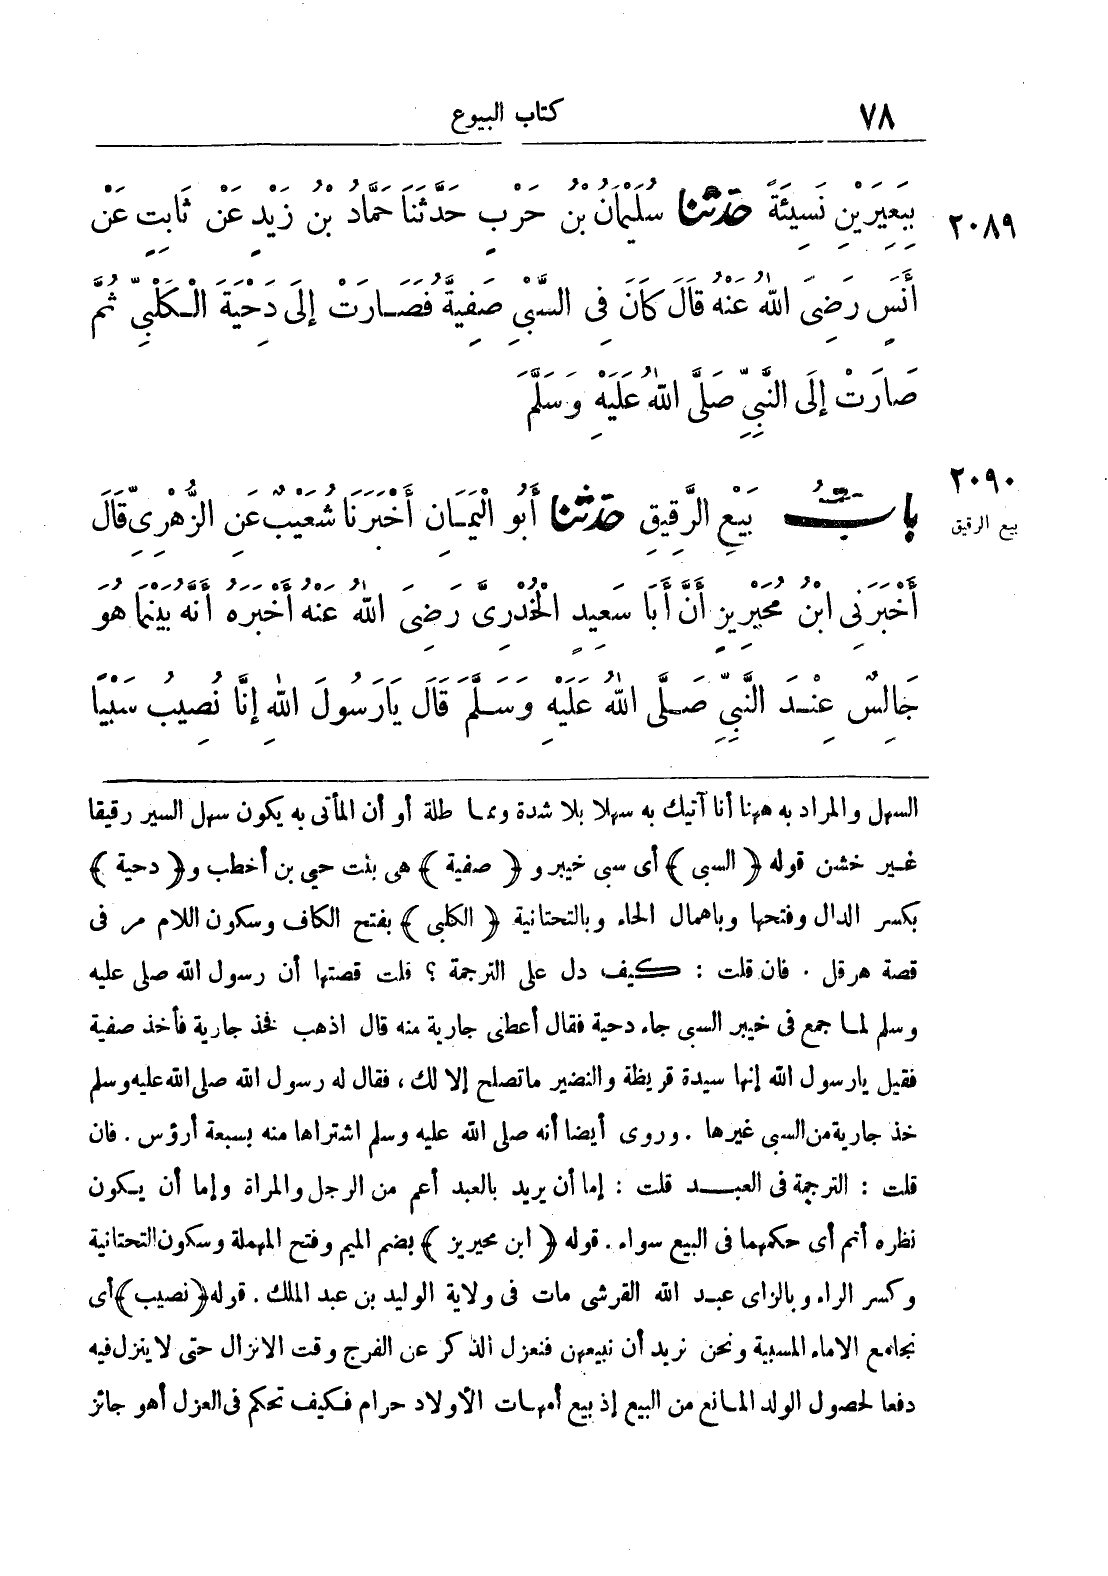 ٧٨
كتاب البيوع
٢٠٨٩
بِبَعِيرَيْنِ نَسِيئَةً حَدَّثَنَا سُلَيْمَانُ بْنُ حَرْبٍ حَدَّثَنَا حَمَّادُ بْنُ زَيْدٍ عَنْ ثَابِتٍ عَنْ
أَنَسٍ رَضِىَ اللهُ عَنْهُ قَالَ كَانَ فِى السَّبْىِ صَفِيَّةُ فَصَارَتْ إِلَى دَحْيَةَ الْكَلْبِىِّ ثُمَّ
صَارَتْ إِلَى النَّبِىِّ صَلَّى اللهُ عَلَيْهِ وَسَلَّمَ
٢٠٩٠
بيع الرقيق
بابُ بَيْعِ الرَّقِيقِ حَدَّثَنَا أَبُو الْيَمَانِ أَخْبَرَنَا شُعَيْبٌ عَنِ الزُّهْرِىِّ قَالَ
أَخْبَرَنِى ابْنُ مُحَيْرِيزٍ أَنَّ أَبَا سَعِيدٍ الْخُدْرِىَّ رَضِىَ اللهُ عَنْهُ أَخْبَرَهُ أَنَّهُ بَيْنَمَا هُوَ
جَالِسٌ عِنْدَ النَّبِىِّ صَلَّى اللهُ عَلَيْهِ وَسَلَّمَ قَالَ يَارَسُولَ اللهِ إِنَّا نُصِيبُ سَبْيًا
السهل والمراد به ههنا أنا آتيك به سهلا بلا شدة ومماطلة أو أن المأتى به يكون سهل السير رقيقا
غير خشن قوله ﴿السبى﴾ أى سبى خيبر و﴿صفية﴾ هى بنت حيى بن أخطب و﴿دحية﴾
بكسر الدال وفتحها وباهمال الحاء وبالتحتانية ﴿الكلبى﴾ بفتح الكاف وسكون اللام مر فى
قصة هرقل . فان قلت : كيف دل على الترجمة ؟ قلت قصتها أن رسول الله صلى عليه
وسلم لما جمع فى خيبر السبى جاء دحية فقال أعطنى جارية منه قال اذهب فخذ جارية فأخذ صفية
فقيل يارسول الله إنها سيدة قريظة والنضير ماتصلح إلا لك، فقال له رسول الله صلى الله عليه وسلم
خذ جارية من السبى غيرها . وروى أيضا أنه صلى الله عليه وسلم اشتراها منه بسبعة أرؤس . فان
قلت : الترجمة فى العبد قلت : إما أن يريد بالعبد أعم من الرجل والمرأة وإما أن يكون
نظره أتم أى حكمهما فى البيع سواء . قوله ﴿ابن محيريز﴾ بضم الميم وفتح المهملة وسكون التحتانية
وكسر الراء وبالزاى عبد الله القرشى مات فى ولاية الوليد بن عبد الملك . قوله ﴿نصيب﴾ أى
نجامع الاماء المسبية ونحن نريد أن نبيعهن فنعزل الذكر عن الفرج وقت الانزال حتى لا ينزل فيه
دفعا لحصول الولد المانع من البيع إذ بيع أمهات الأولاد حرام فكيف تحكم فى العزل أهو جائز